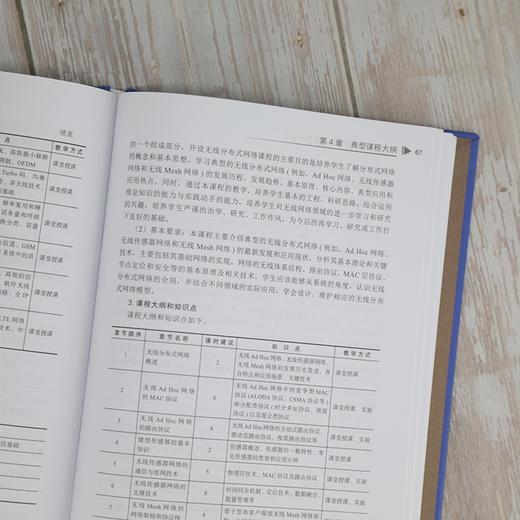 续表
点
教学方式
K、高斯最小频移
调制、OFDM
课堂授课
Turbo 码、均衡
等、多天线技术、
基础
课堂授课
频率复用和蜂
话务量和呼损
换分类、容量
课堂授课
信道、GSM
系统中的话
课堂授课
高效的信
课堂授课
LTE 网络
技术、中
课堂授课
信基础
第 4 章 典型课程大纲 67
的一个组成部分，开设无线分布式网络课程的主要目的是培养学生了解分布式网络
的概念和基本思想，学习典型的无线分布式网络（例如，Ad Hoc 网络、无线传感器
网络和无线 Mesh 网络）的发展历程、发展趋势、基本原理、核心内容、典型应用和
应用热点。同时，通过本课程的教学，培养学生基本的工程、科研思路、综合运用
理论知识的能力与实践动手的能力，培养学生对无线网络领域的进一步学习和研究
的兴趣，培养学生严谨的治学、研究、工作作风，为今后的再学习、研究或工作打
下良好的基础。
（2）基本要求：本课程主要介绍典型的无线分布式网络（例如，Ad Hoc 网络、
无线传感器网络和无线 Mesh 网络）的最新发展和应用现状，分析其基本理论和关键
技术，主要包括其基础网络的实现，网络的无线体系结构、路由协议、MAC 层协议、
节点定位和安全等的基本原理及相关技术，学生应该能够从系统的角度，认识无线
分布式网络的全局，并结合不同领域的实际应用，学会设计、维护相应的无线分布
式网络模型。
3. 课程大纲和知识点
课程大纲和知识点如下。
章节顺序 章节名称 课时建议 知识点 教学方式
1 无线分布式网络概述 2 无线 Ad Hoc 网络、无线传感器网络、
无线 Mesh 网络的发展历史简述、各
自特点和应用场景、关键技术 课堂授课
2 无线 Ad Hoc 网络的 MAC 协议 8 无线 Ad Hoc 网络中的竞争类 MAC
协议（ALOHA 协议、CSMA 协议等）
和分配类协议（时分多址协议、预留
协议）以及混合类协议 课堂授课、实验
3 无线 Ad Hoc 网络的路由协议 8 无线 Ad Hoc 网络的主动式路由协议、
课堂授课、实验
4 微型传感器的基本知识 2 传感器概述、传感器的一般特性、常
见传感器的类型和应用示例 课堂授课
5 无线传感器网络的通信与组网技术 6 物理层技术、MAC 协议及路由协议 课堂授课、实验
6 无线传感器网络的支撑技术 8 时间同步机制、定位技术、数据融合、
能量管理等 课堂授课、实验
7 无线 Mesh 网络的网络架构和协议栈 骨干型和客户端型无线 Mesh 网络架